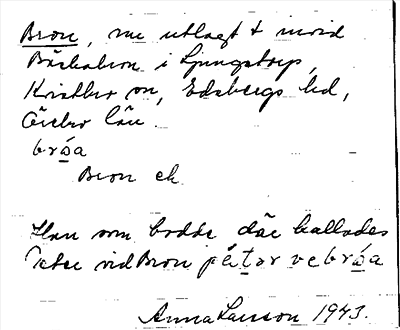 Bron, nu utlagt t invid
Bäckabron i Ljungstorp,
Knista sn, Edsbergs hd,
Örebro län.
bróa
Bron ek
Han som bodde där kallades
Peter vid Bron pétər ve bróa
Anna Larsson 1943.